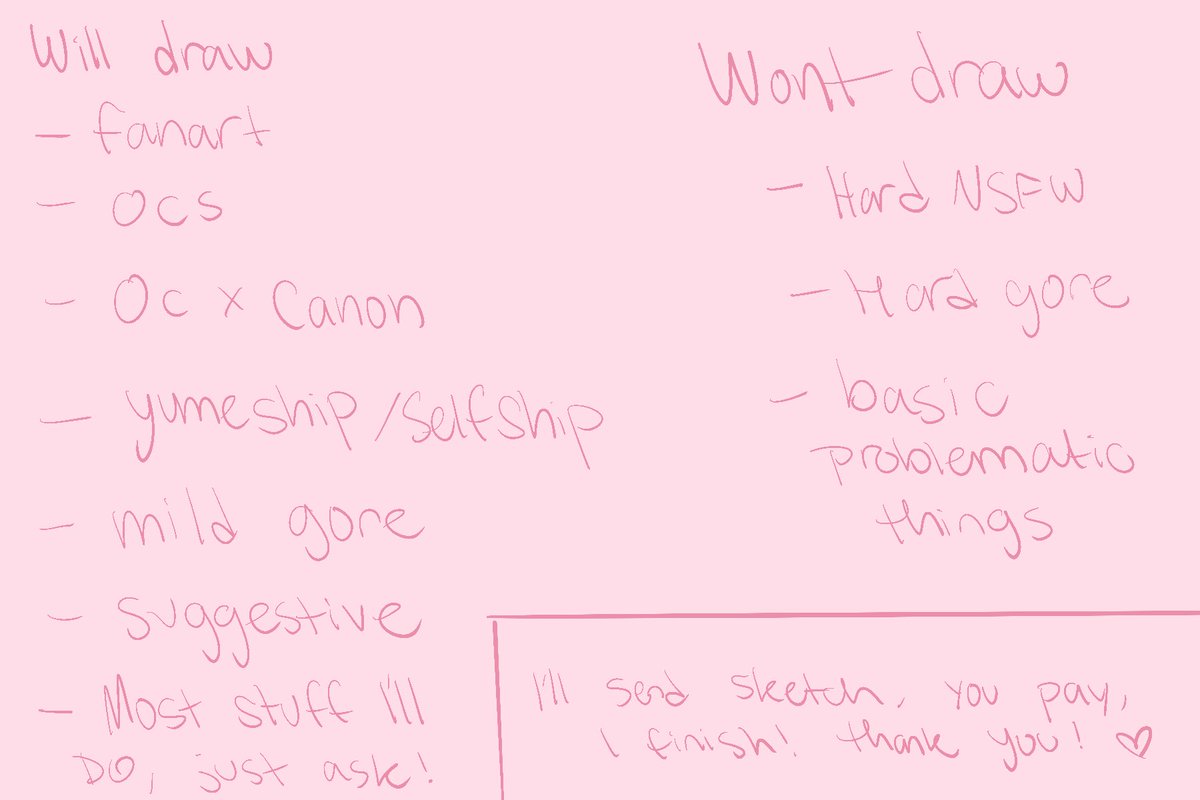 Will draw
- fanart
- ocs
- Oc x Canon
- yumeship/selfship
- mild gore
- suggestive
- Most stuff I'll
Do, just ask!
Wont draw
- Hard NSFW
- Hard gore
- basic
problematic
things
I'll send sketch, you pay,
I finish! thank you! ♡